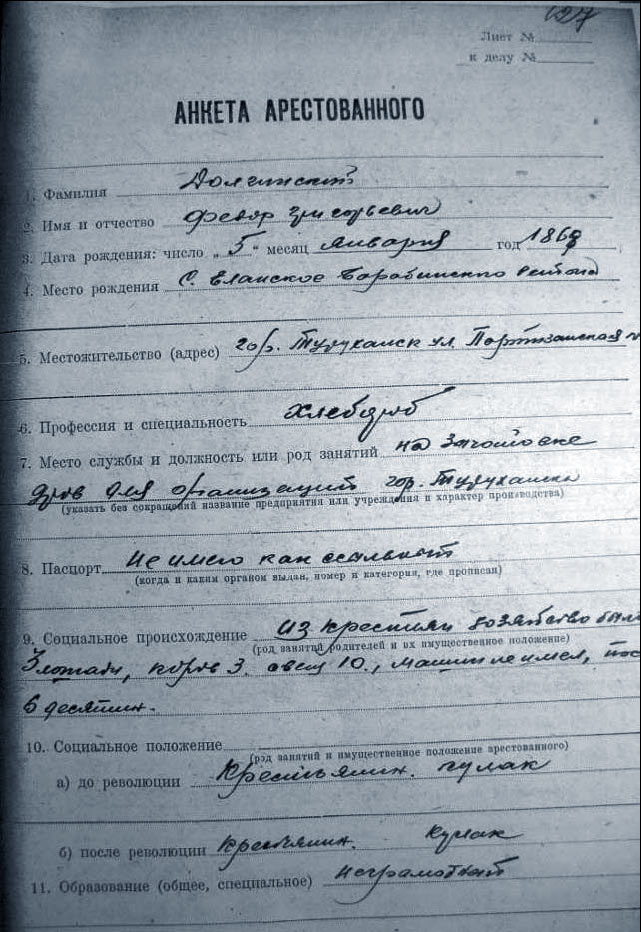 627
Лист №
к делу №
АНКЕТА АРЕСТОВАННОГО
1. Фамилия
2. Имя и отчество Федор Григорьевич
3. Дата рождения: число „5“ месяц января год 1868
4. Место рождения С. Еланское Барабинского района
5. Местожительство (адрес) гор. Туруханск ул. Партизанская
6. Профессия и специальность хлебороб
7. Место службы и должность или род занятий на заготовке
дров для организаций гор. Туруханска
(указать без сокращений название предприятия или учреждения и характер производства)
8. Паспорт Не имею как ссыльный
(когда и каким органом выдан, номер и категория, где прописан)
9. Социальное происхождение из крестьян хозяйство было
(род занятий родителей и их имущественное положение)
3 лошади, коров 3, овец 10, машин не имел, пос
6 десятин.
10. Социальное положение
(род занятий и имущественное положение арестованного)
а) до революции Крестьянин. кулак
б) после революции крестьянин. Кулак
11. Образование (общее, специальное) неграмотный